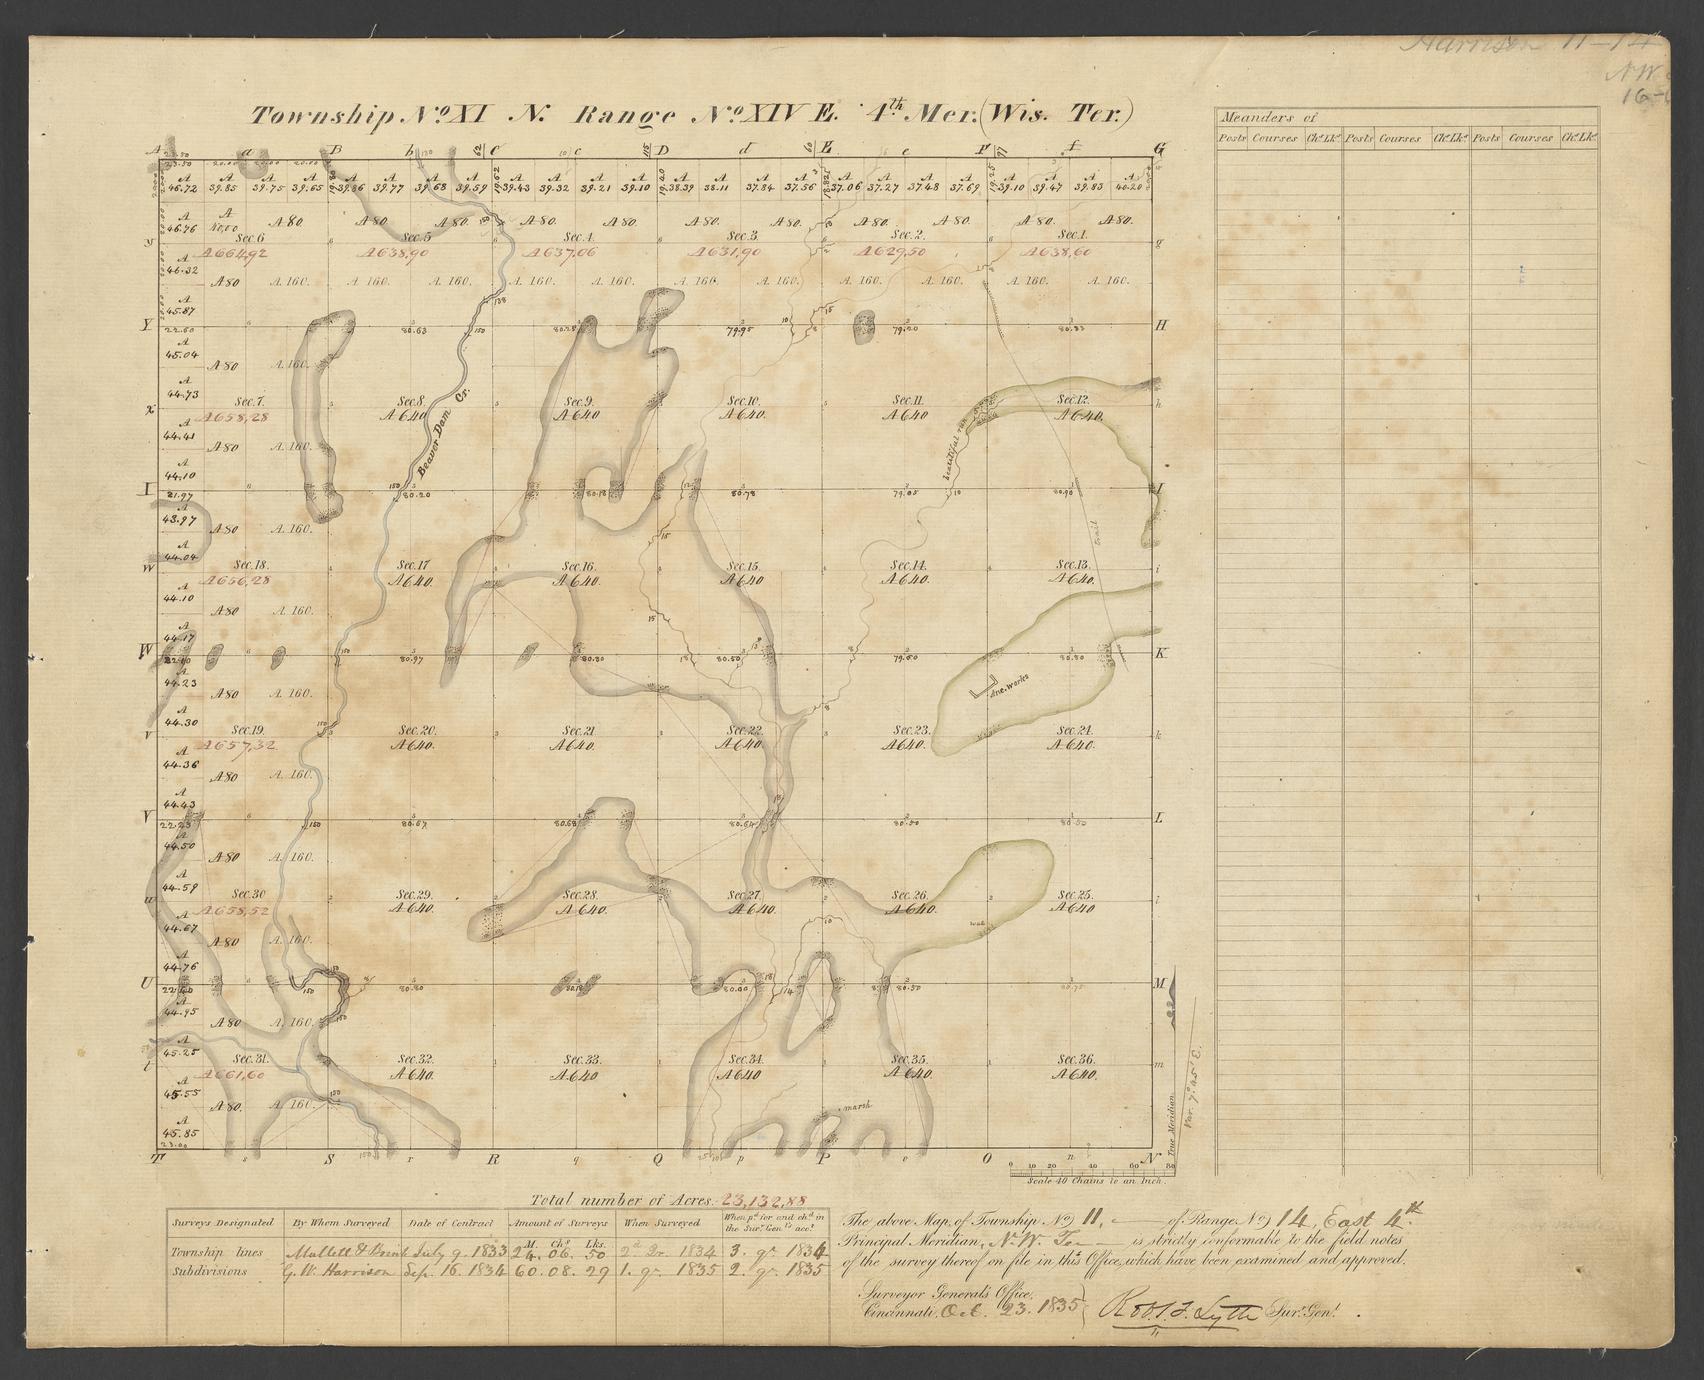 Harrison 11-14
N.W.
Township No XI N. Range No XIV E. 4th Mer. (Wis. Ter.)
Meanders of
Posts Courses Chs Lks Posts Courses Chs Lks Posts Courses Chs Lks
A a B b C c D d E e F f G
A A A A A A A A A A A A A A A A A A A A A A A A
46.72 39.85 39.75 39.65 39.86 39.77 39.68 39.59 39.43 39.32 39.21 39.10 38.39 38.11 37.84 37.56 37.06 37.27 37.48 37.69 39.10 39.47 39.83 40.20
A 46.76 A 40.00 A 80. A 80. A 80. A 80. A 80. A 80. A 80. A 80. A 80. A 80. A 80.
y Sec. 6 Sec. 5 Sec. 4 Sec. 3 Sec. 2. Sec. 1. g
A 664,92 A 638,90 A 637,06 A 631,90 A 629,50 A 638,60
A 46.32
A 80 A. 160. A. 160. A. 160. A. 160. A. 160. A. 160. A. 160. A. 160. A. 160. A. 160. A. 160.
A 45.87
Y 22.60 80.63 150 79.95 79.20 80.33 H
A 45.04 A 80 A. 160.
A 44.73
x Sec. 7. Sec. 8. Sec. 9. Sec. 10. Sec. 11. Sec. 12. h
A 658,28 A 640 A 640 A 640. A 640 A 640.
Beaver Dam Cr.
beautiful run
A 44.41 A 80 A. 160.
A 44.10
I 21.97 150 80.20 80.18 80.78 79.05 10 80.90 I
A 43.97 A 80 A. 160.
trail
A 44.04
w Sec. 18. Sec. 17 Sec. 16. Sec. 15. Sec. 14. Sec. 13. i
A 656,28 A 640. A 640. A 640 A 640. A 640.
A 44.10 A 80 A. 160.
A 44.17
W 22.10 150 80.97 80.80 80.50 79.60 80.80 K
A 44.23 A 80 A. 160.
Anc. works
A 44.30
v Sec. 19. Sec. 20. Sec. 21 Sec. 22. Sec. 23. Sec. 24. k
A 657,32 A 640. A 640. A 640. A 640. A 640.
A 44.36 A 80 A. 160.
A 44.43
V 22.23 150 80.67 80.68 80.64 80.50 80.50 L
A 44.50 A 80 A. 160.
A 44.59
u Sec. 30 Sec. 29. Sec. 28. Sec. 27. Sec. 26. Sec. 25. l
A 658,52 A 640. A 640. A 640. A 640. A 640.
A 44.67 A 80 A. 160.
A 44.76
U 22.40 150 80.80 80.00 14 80.50 M
A 44.95 A 80 A. 160.
A 45.25
t Sec. 31. Sec. 32. Sec. 33. Sec. 34. Sec. 35. Sec. 36. m
A 661,60 A 640. A 640 A 640 A 640. A 640.
A 45.55 A 80. A. 160.
marsh
A 45.85
23.00
T s S r R q Q p P o O n N
True Meridian
Var. 7° 45' E.
0 10 20 40 60 80
Scale 40 Chains to an Inch.
Total number of Acres. 23,132,88
Surveys Designated By Whom Surveyed Date of Contract Amount of Surveys When Surveyed When pd for and chd in the Sur. Genl's acct
M. Chs Lks.
Township lines Mullett & Brink July 9. 1833 24. 06. 50 2d Qr. 1834 3. qr 1834
Subdivisions G. W. Harrison Sep. 16. 1834 60. 08. 29 1. qr. 1835 2. qr. 1835
The above Map, of Township No 11, of Range No 14, East 4th.
Principal Meridian, N. W. Ter is strictly conformable to the field notes
of the survey thereof on file in this Office, which have been examined and approved.
Surveyor General's Office,
Cincinnati, Oct. 23. 1835 Robt. T. Lytle Surr. Genl.